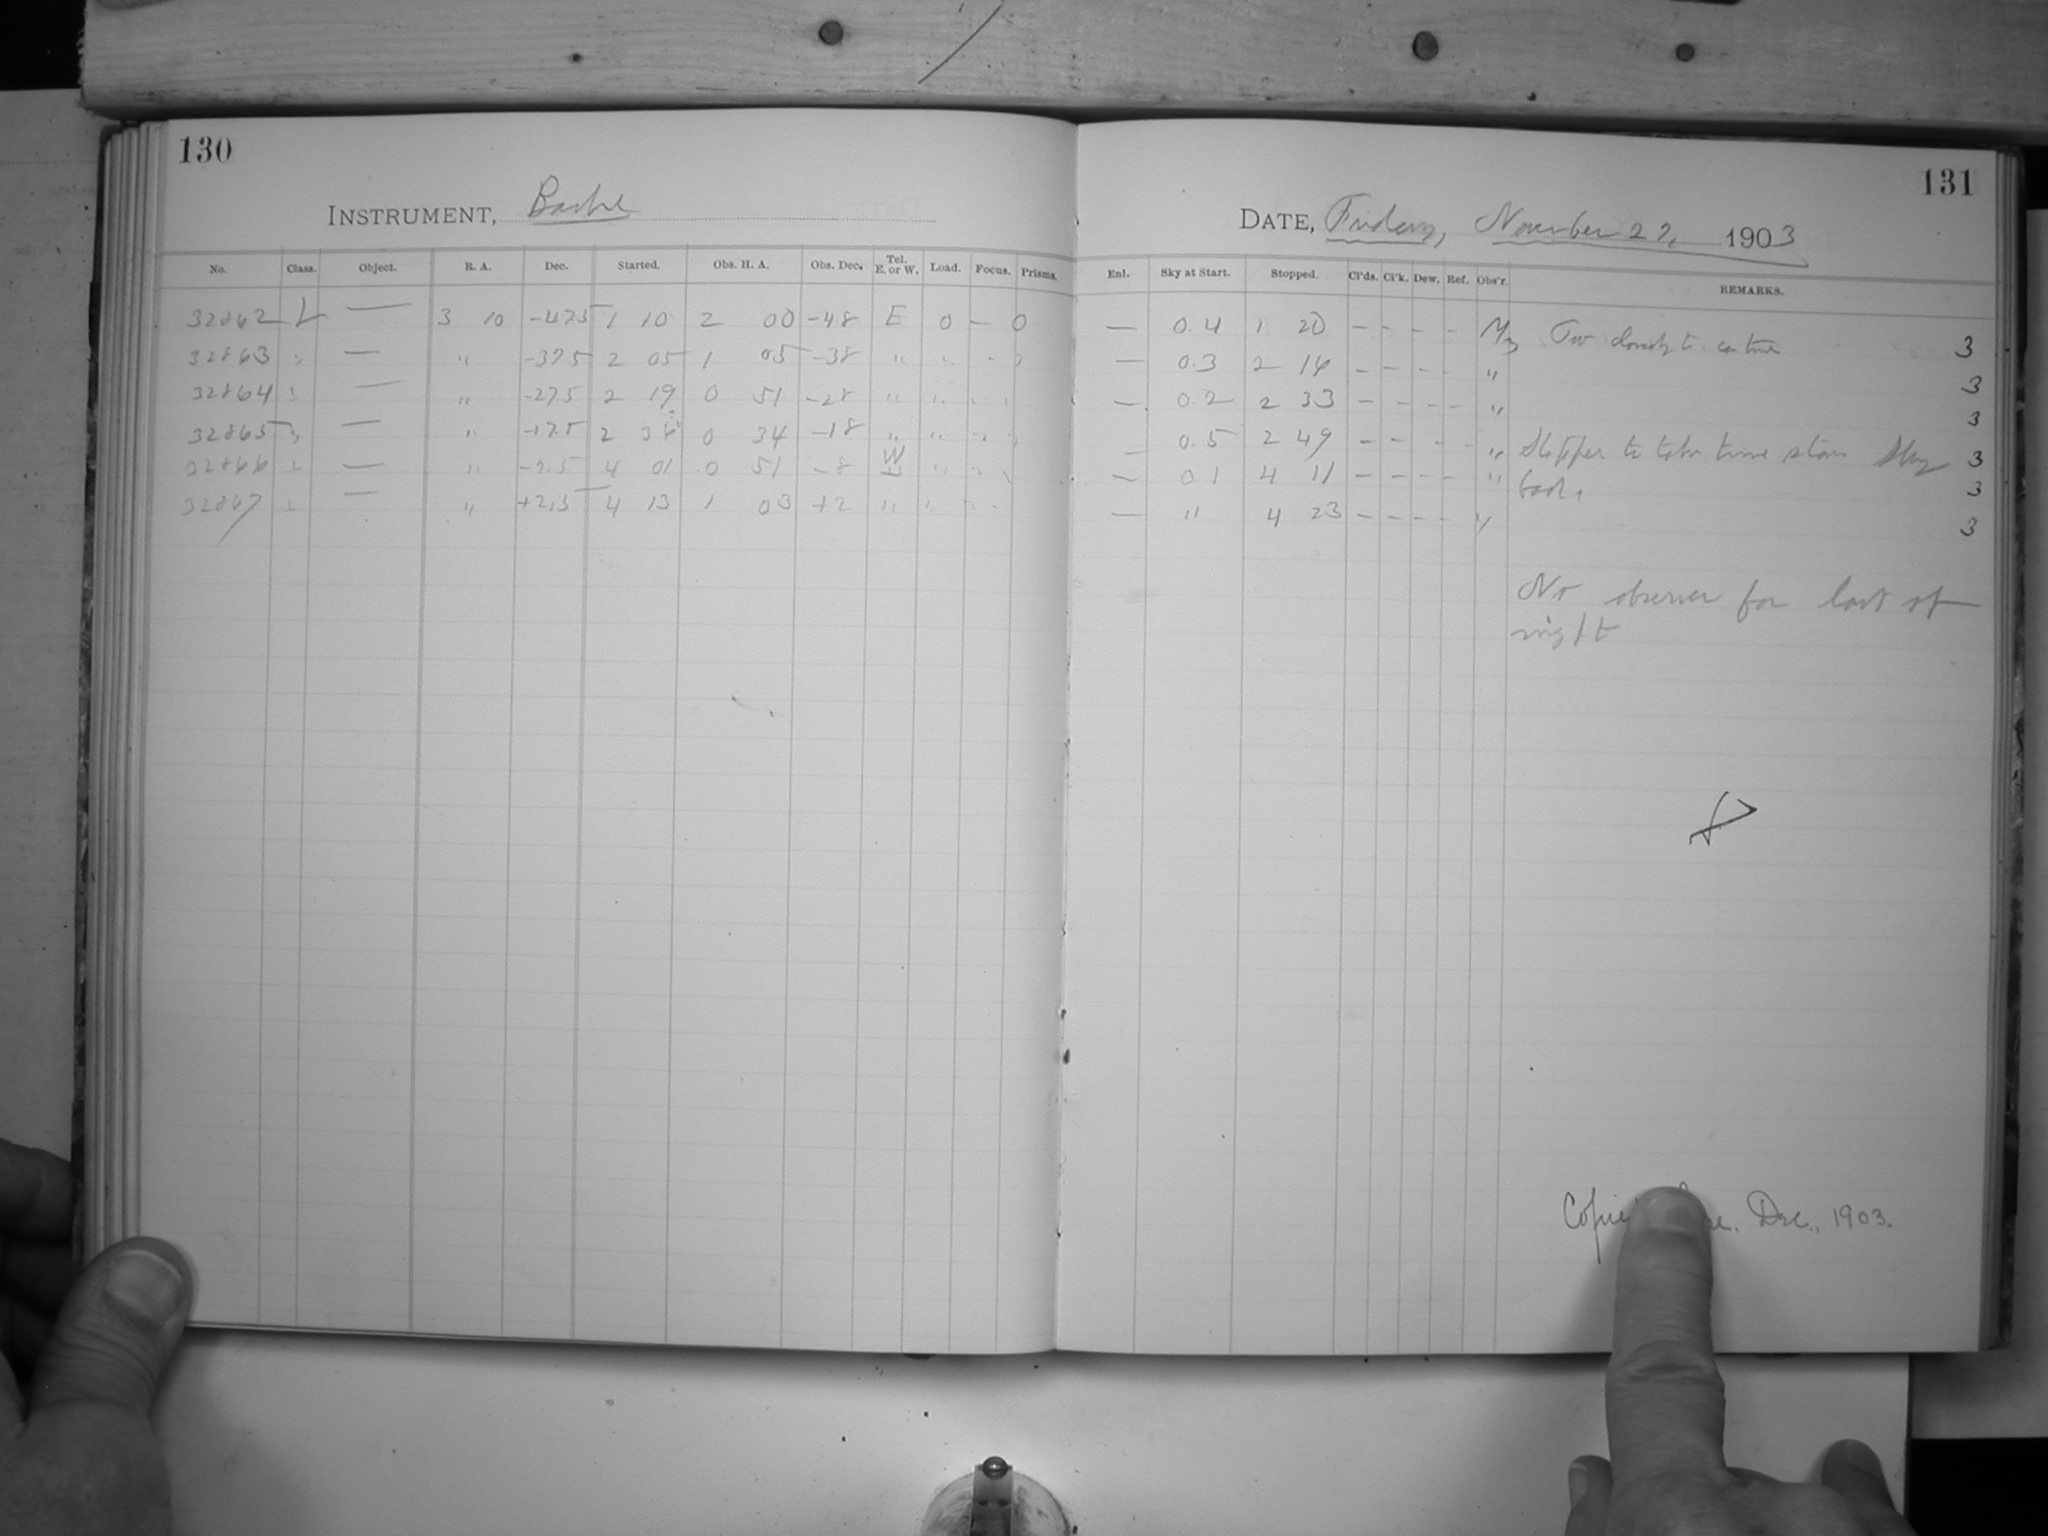 130
131
INSTRUMENT, Bache
DATE, Friday, November 27, 1903
No. Class. Object. R. A. Dec. Started. Obs. H. A. Obs. Dec. Tel. E. or W. Load. Focus. Prisms. Enl. Sky at Start. Stopped. Cl'ds. Cl'k. Dew. Ref. Obs'r. REMARKS.
32862 L — 3 10 -47.5 1 10 2 00 -48 E 0 — 0 — 0.4 1 20 - - - - Too cloudy to continue 3
32863 " — " -37.5 2 05 1 05 -38 " " - " — 0.3 2 16 - - - - " 3
32864 " — " -27.5 2 19 0 51 -28 " " - " — 0.2 2 33 - - - - " 3
32865 " — " -17.5 2 36 0 34 -18 " " - " — 0.5 2 49 - - - - " Stopped to take time stars Sky 3
32866 " — " -7.5 4 01 0 51 -8 W " - " — 0.1 4 11 - - - - " bad. 3
32867 " — " +2.5 4 13 1 03 +2 " " - - — " 4 23 - - - - " 3
No observer for last of
night
Dec., 1903.